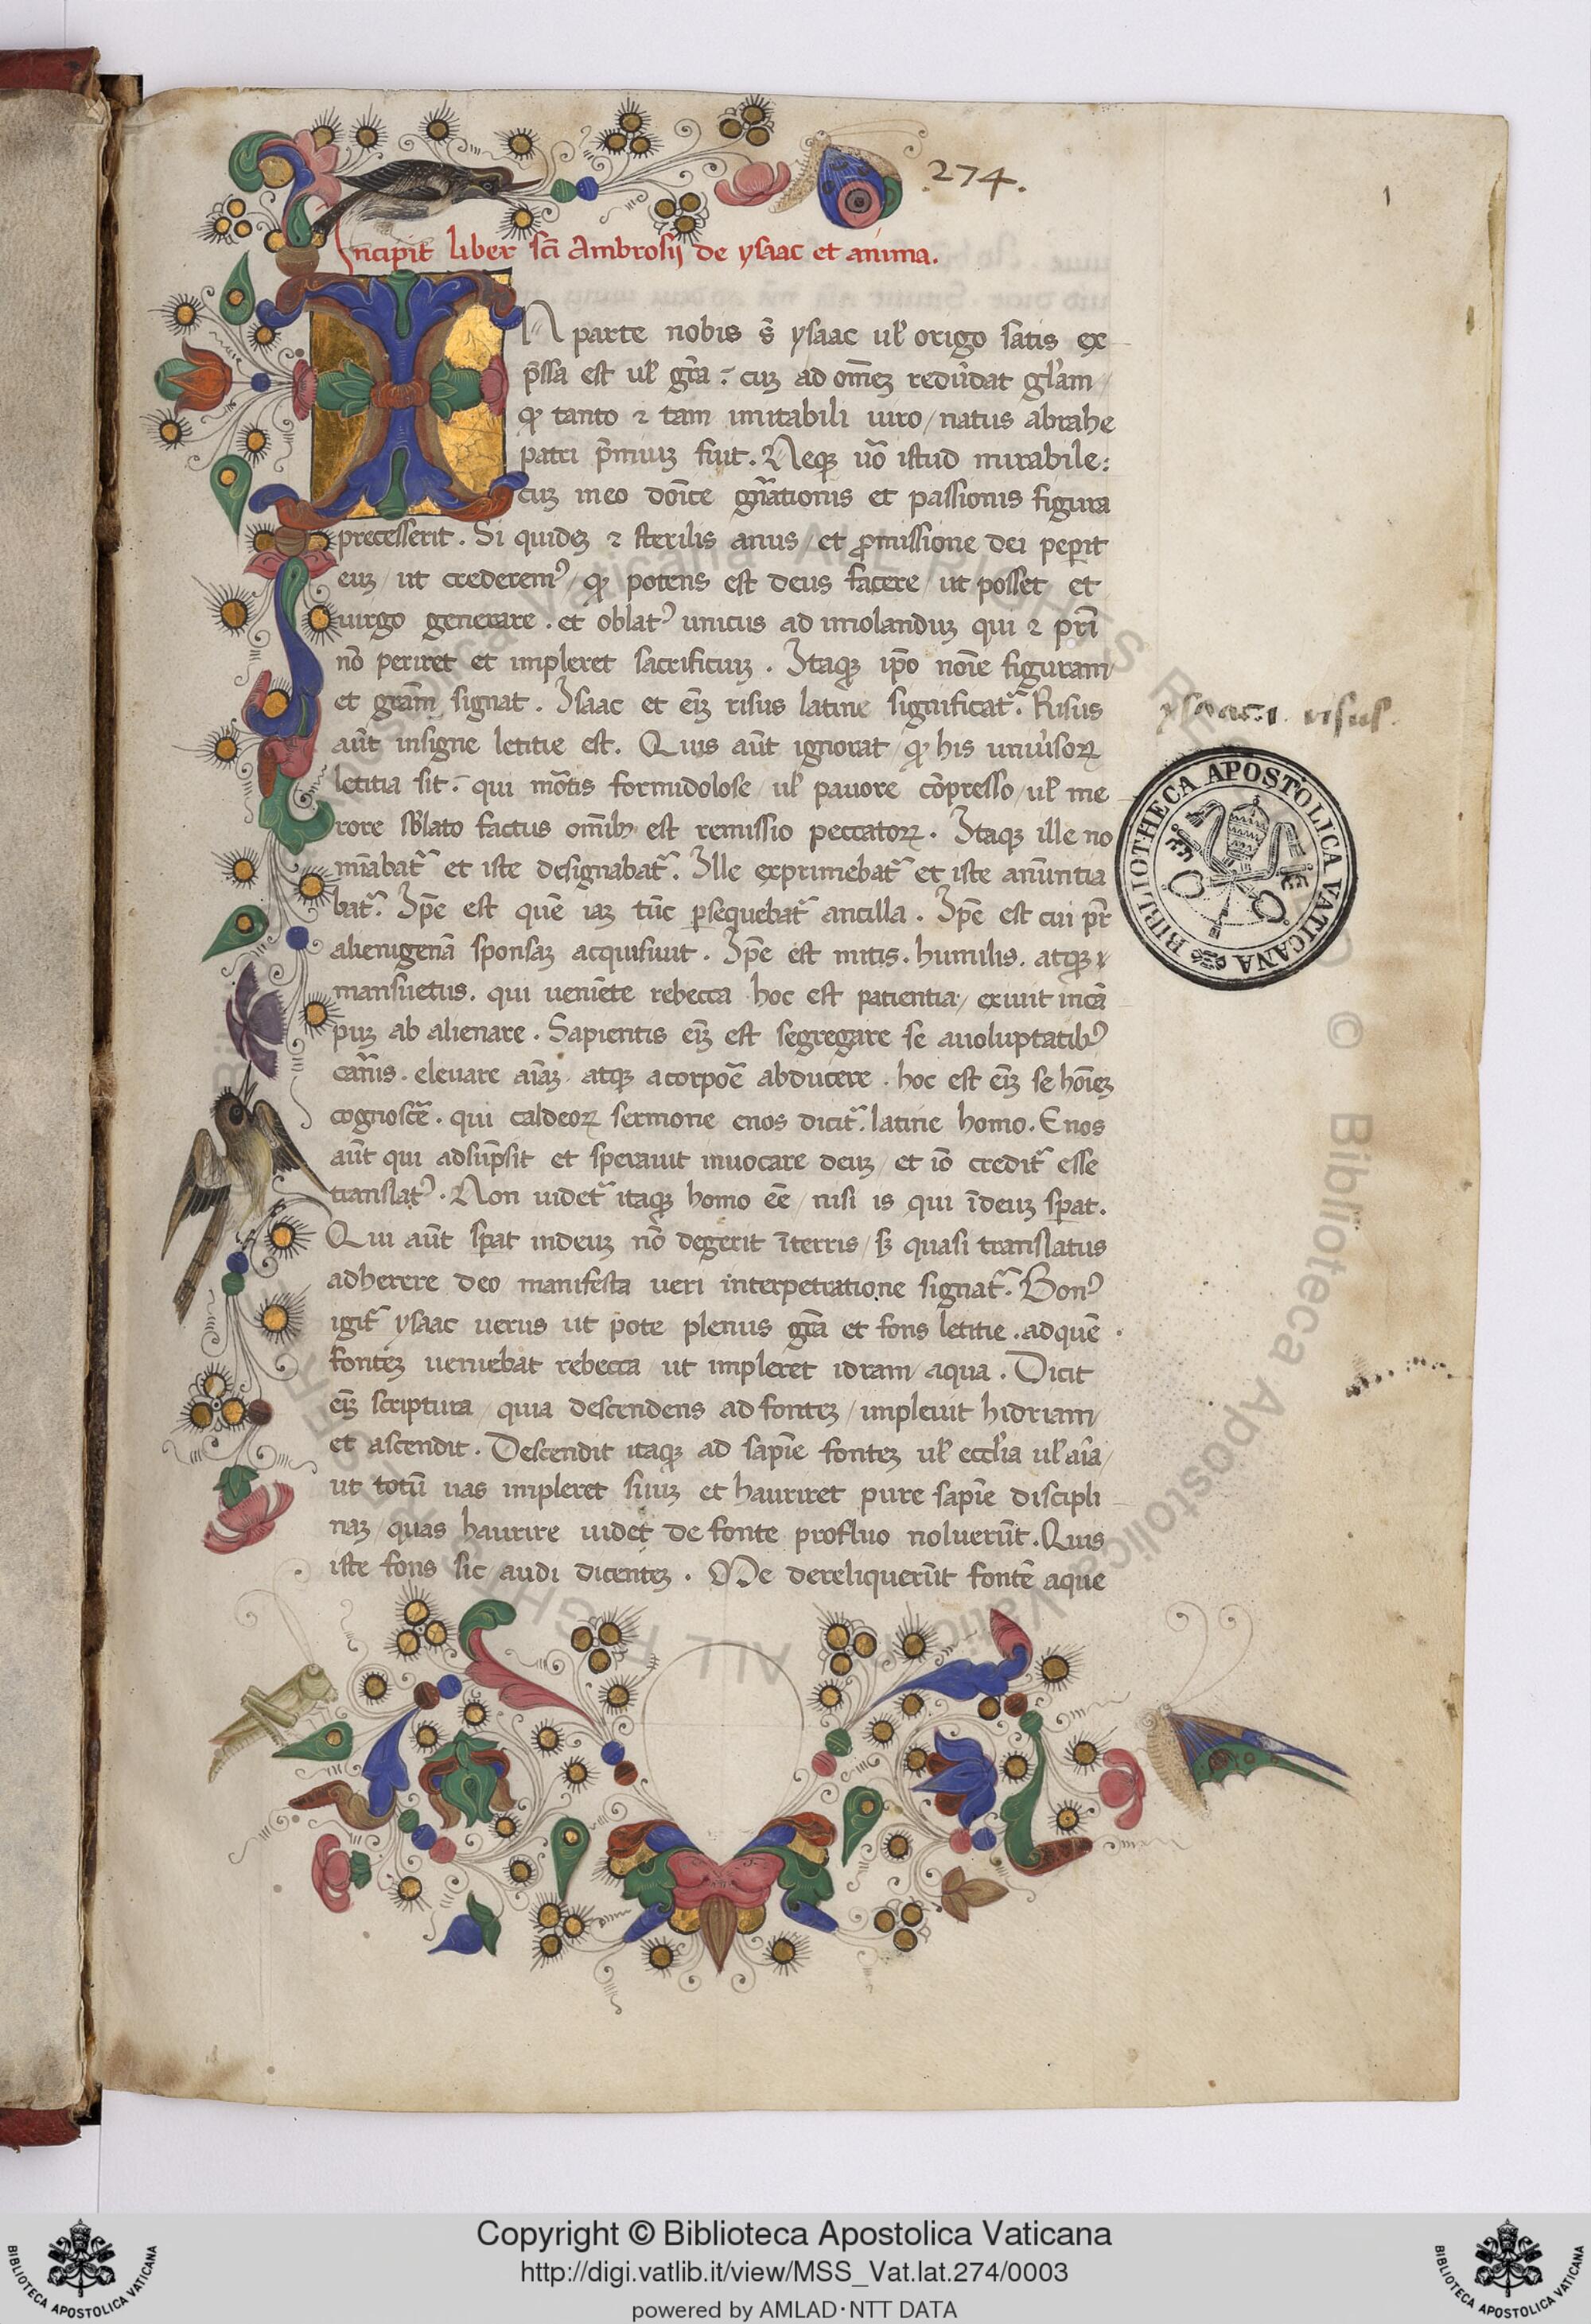 .274.
1
Incipit liber sci Ambrosij de ysaac et anima.
IN parte nobis s̃ ysaac ul̃ origo satis ex
p̃ssa est ul̃ gr̃a: cuz ad om̃ez redũdat gl̃am
qꝫ tanto ⁊ tam imitabili uiro / natus abrahe
patri p̃miuz fuit. Neqꝫ ũo istud mirabile:
cuz in eo dõice gñationis et passionis figura
precesserit. Si quidez ⁊ sterilis anus / et ꝓmissione dei peꝑit
euz / ut crederemꝰ / qꝫ potens est deus facere / ut posset et
uirgo generare. et oblatꝰ unicus ad imolanduz qui ⁊ pr̃i
nõ periret et impleret sacrificiuz. Itaqꝫ ip̃o noĩe figuram
et gr̃am signat. Isaac et eĩz risus latine significat᷑. Risus
aũt insigne letitie est. Quis aũt ignorat / qꝫ his uniũsoꝝ
letitia sit: qui mõtis formidolose / ul̃ pauore cõpresso / ul̃ me
rore sb̃lato factus omĩbꝫ est remissio peccatoꝝ. Itaqꝫ ille no
mĩabat᷑ et iste designabat᷑. Ille exprimebat᷑ et iste anũntia
bat᷑. Ip̃e est quẽ iaz tũc ꝑsequebat᷑ ancilla. Ip̃e est cui pr̃
alienigenã sponsaz acquisiuit. Ip̃e est mitis. humilis. atqꝫ
mansuetus. qui ueniẽte rebecca hoc est patientia / exiuit in cã
puz ab alienare. Sapientis eĩz est segregare se a uoluptatibꝰ
carñis. eleuare aĩaz. atqꝫ a corpoẽ abducere. hoc est eĩz se hoĩez
cognoscẽ. qui caldeoꝝ sermone enos dicit᷑. latine homo. Enos
aũt qui adsũpsit et sperauit inuocare deuz / et iõ credit᷑ esse
translatꝰ. Non uidet᷑ itaqꝫ homo eẽ / nisi is qui ĩ deuz sꝑat.
Qui aũt sꝑat in deuz nõ degerit ĩ terris / sꝫ quasi translatus
adherere deo manifesta ueri interpetratione signat᷑. Bonꝰ
igit᷑ ysaac uerus ut pote plenus gr̃a et fons letitie. ad quẽ
fontez ueniebat rebecca ut impleret idram aqua. Dicit
eĩz scriptura / quia descendens ad fontez / impleuit hidriam
et ascendit. Descendit itaqꝫ ad sapiẽ fontez ul̃ eccl̃ia ul̃ aĩa /
ut totũ uas impleret suuz et hauriret pure sapiẽ discipli
naz / quas haurire iudei de fonte profluo noluerũt. Quis
iste fons sic audi dicentez. Me dereliquerũt fontẽ aque
ysaac .i. risus.
BIBLIOTHECA APOSTOLICA VATICANA
Copyright © Biblioteca Apostolica Vaticana
http://digi.vatlib.it/view/MSS_Vat.lat.274/0003
powered by AMLAD·NTT DATA
BIBLIOTECA APOSTOLICA VATICANA
BIBLIOTECA APOSTOLICA VATICANA